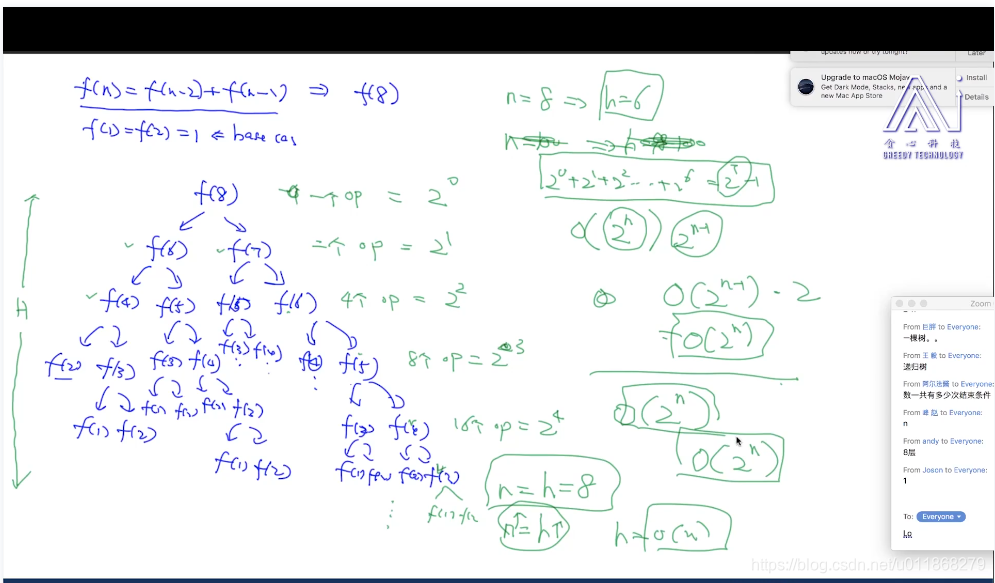 f(n) = f(n-2) + f(n-1) ⇒ f(8)
f(1) = f(2) = 1 ← base cas
f(8) 一个 op = 2^0
f(6) f(7) 二个 op = 2^1
f(4) f(5) f(5) f(6) 4个 op = 2^2
f(3) f(4)
f(2) f(3) f(3) f(4) f(4) f(5) 8个 op = 2^3
f(1) f(2) f(1) f(2)
f(1) f(2) 16个 op = 2^4
f(1) f(2)
H
n = h = 8
n↑ = h↑
n = 8 ⇒ h = 6
2^0 + 2^1 + 2^2 ... + 2^6 = 2^7 - 1
O(2^n) 2^{n-1}
O(2^{n-1}) · 2
= O(2^n)
O(2^n)
O(2^n)
h = O(n)
Later
Upgrade to macOS Mojav
Install
Get Dark Mode, Stacks, new apps and a
new Mac App Store
Details
贪心科技
GREEDY TECHNOLOGY
Zoom
From 巨胖 to Everyone:
一棵树。。
From 王毅 to Everyone:
递归树
数一共有多少次结束条件
n
From andy to Everyone:
8层
From Joson to Everyone:
1
To: Everyone
Lo
https://blog.csdn.net/u011868279